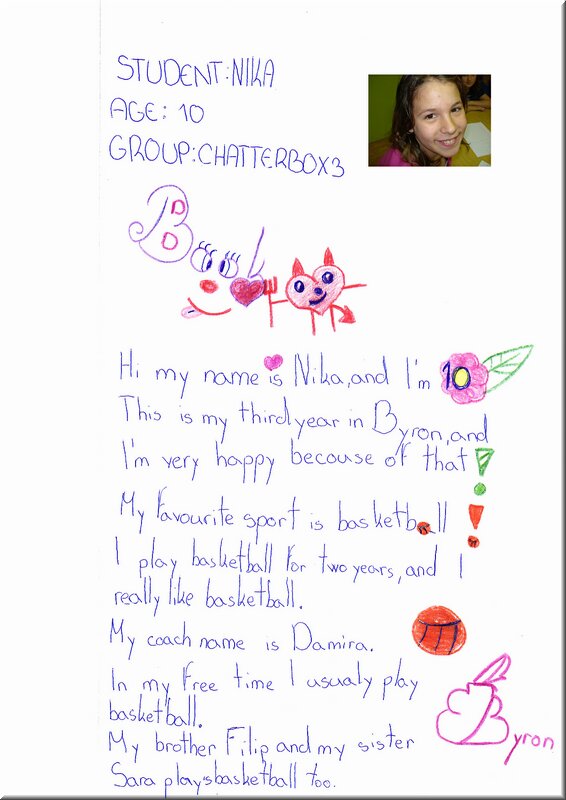 STUDENT:NIKA
AGE: 10
GROUP:CHATTERBOX3
Book
Hi my name is Nika,and I'm 10
This is my third year in Byron,and
I'm very happy becouse of that!
My favourite sport is basketball!
I play basketball for two years,and I
really like basketball.
My coach name is Damira.
In my free time I usualy play
basketball.
My brother Filip and my sister
Sara playsbasketball too.
Byron